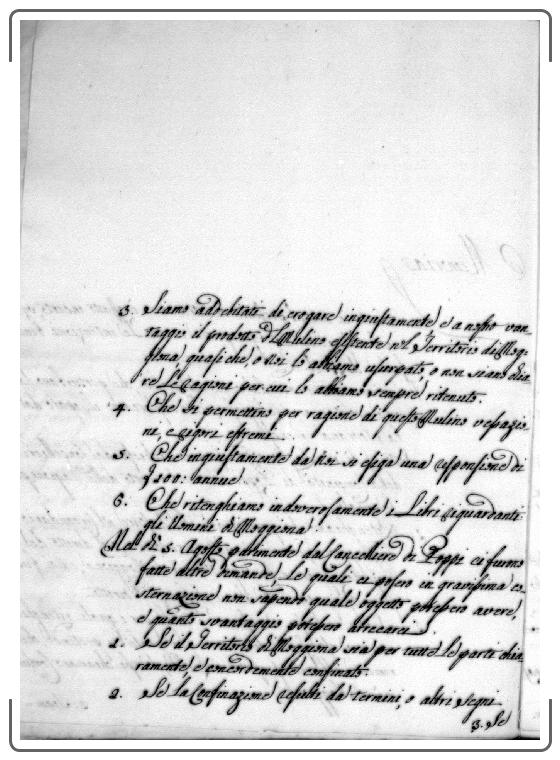 3. Siamo addebitati di erogare ingiustamente, e a nostro van-
taggio il prodotto d'l Mulino esistente n'l Territorio di Mog-
giona quasi che, o Noi lo abbiamo usurpato, o non siano chia-
re le ragioni per cui lo abbiamo sempre ritenuto.
4. Che si permettino per ragione di questo Mulino vessazio-
ni, e rigori estremi.
5. Che ingiustamente da Noi si esiga una responsione di
100: annue
6. Che ritenghiamo indoverosamente i Libri riguardanti
gli Uomini di Moggiona
Nel dì 5. Agosto parimente dal Cancelliere di Poppi ci furno
fatte altre dimande, le quali ci posero in gravissima co-
sternazione non sapendo quale oggetto potessero avere,
e quanto svantaggio potessero arrecarci
1. Se il Territorio di Moggiona sia per tutte le parti chia-
ramente, e concordemente confinato.
2. Se la Confinazione resulti da termini, o altri segni
3. Se